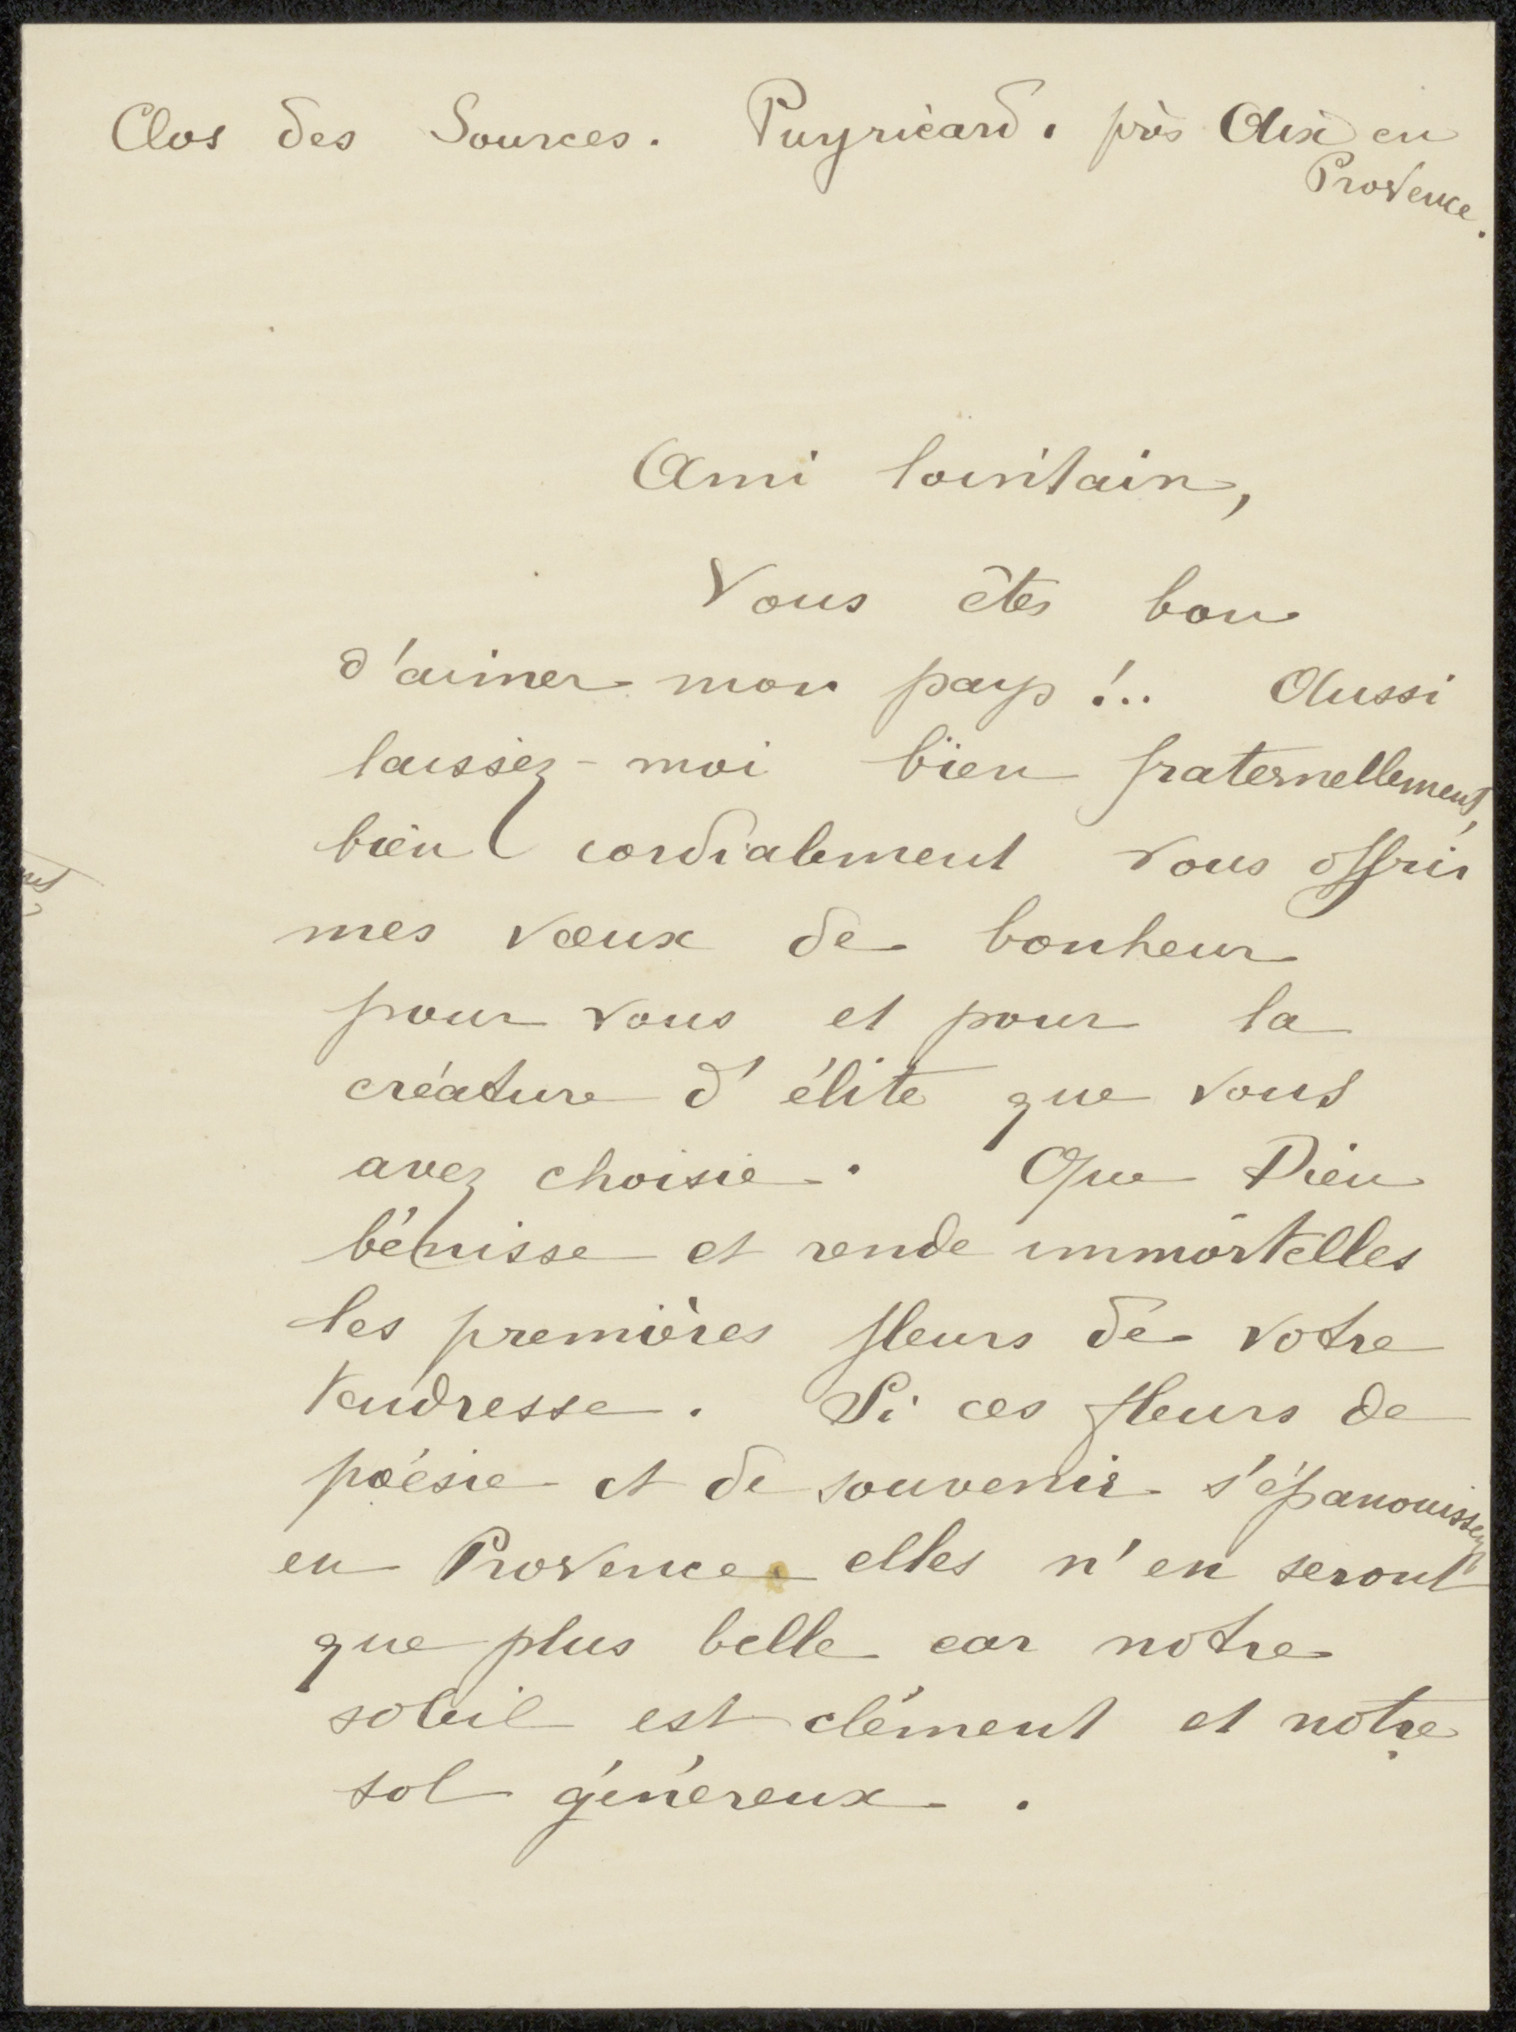 Clos des Sources. Puyricard. près Aix en
Provence.
Ami lointain,
Vous êtes bon
d'aimer mon pays !.. Aussi
laissez-moi bien fraternellement,
bien cordialement vous offrir
mes vœux de bonheur
pour vous et pour la
créature d'élite que vous
avez choisie. Que Dieu
bénisse et rende immortelles
les premières fleurs de votre
tendresse. Si ces fleurs de
poésie et de souvenir s'épanouissent
en Provence elles n'en seront
que plus belle car notre
soleil est clément et notre
sol généreux.